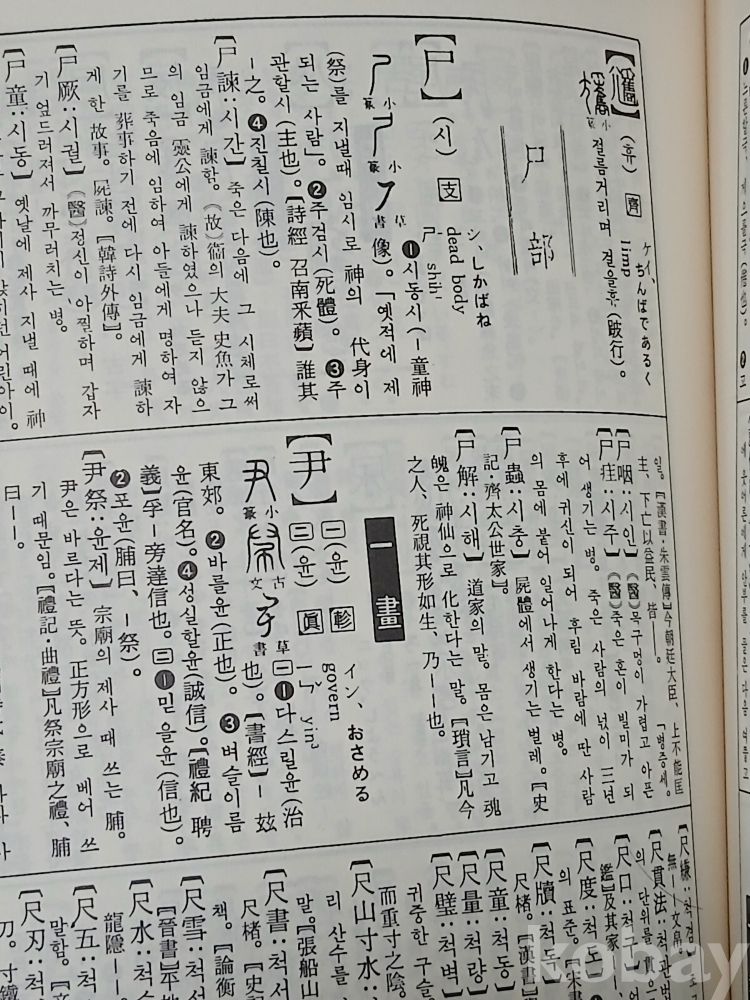 (휴) 齊
ケイ、ちんばであるく
limp
절름거리며 걸을휴(跛行)。
尸部
【尸】
(시) 支
シ、しかばね
dead body
shih
小篆
小篆
草書
❶시동시(ー童神
像)。「옛적에 제
(祭)를 지낼때 임시로 神의 代身이
되는 사람」。❷주검시(死體)。❸주
관할시(主也)。【詩經 召南采蘋】誰其
ー之。❹진칠시(陳也)。
【尸諫:시간】 죽은 다음에 그 시체로써
임금에게 諫함。《故》衞의 大夫 史魚가 그
의 임금 靈公에게 諫하였으나 듣지 않으
므로 죽음에 임하여 아들에게 명하여 자
기를 葬事하기 전에 다시 임금에게 諫하
게 한 故事。屍諫。【韓詩外傳】。
【尸厥:시궐】《醫》정신이 아찔하며 갑자
기 엎드러져서 까무러치는 병。
【尸童:시동】 옛날에 제사 지낼 때에 神
일。【漢書·朱雲傳】今朝廷大臣、上不能匡
主、下亡以益民、皆ーー。 「병증세。
【尸咽:시인】《醫》목구멍이 가렵고 아픈
【尸疰:시주】《醫》죽은 혼이 빌미가 되
어 생기는 병。죽은 사람의 넋이 三년
후에 귀신이 되어 후림 바람에 딴 사람
의 몸에 붙어 일어나게 한다는 병。
【尸蟲:시충】 屍體에서 생기는 벌레。【史
記·齊太公世家】。
【尸解:시해】 道家의 말。몸은 남기고 魂
魄은 神仙으로 化한다는 말。【瑣言】凡今
之人、死視其形如生、乃ーー也。
一畫
【尹】
㊀(윤) 軫
㊁(윤) 眞
イン、おさめる
govern
yin³
小篆
古文
草書
㊀❶다스릴윤(治
也)。【書經】ー玆
東郊。❷바를윤(正也)。❸벼슬이름
윤(官名)。❹성실할윤(誠信)。【禮紀 聘
義】孚ー旁達信也。㊁❶믿을윤(信也)。
❷포윤(脯曰、ー祭)。
【尹祭:윤제】 宗廟의 제사 때 쓰는 脯。
尹은 바르다는 뜻。正方形으로 베어 쓰
기 때문임。【禮記·曲禮】凡祭宗廟之禮、脯
曰ーー。
無ーー文帛
【尺貫法:척관법
의 단위를 貫으
【尺口:척구】
鑑】及其家
【尺度:척도】
의 표준。【宋書
【尺牘:척독】
尺楮。【漢書】
【尺童:척동】
【尺量:척량】
【尺璧:척벽】
귀중한 구슬
而重寸之陰
【尺山寸水:
리 산수를
말。【張船山
【尺書:척서
尺楮。【史記
책。【論衡
【尺雪:척서
【晉書】平地
【尺水:척수
龍隱ーー
【尺五:척
말함。
【尺刃:척
刀。寸鐵
kobay